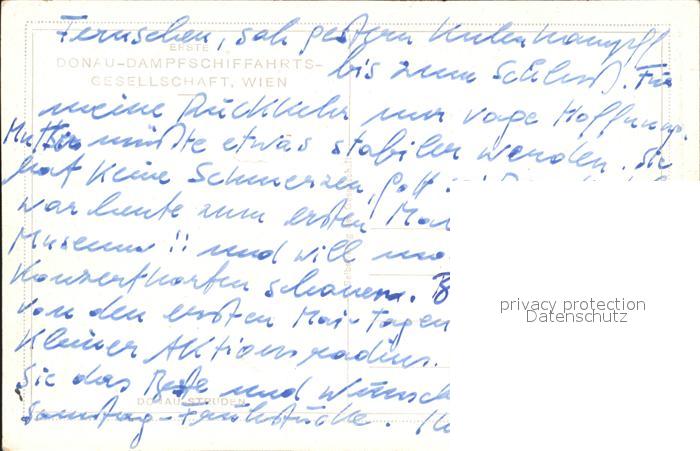 Fernsehen, sah gestern Kulenkampff
ERSTE
DONAU-DAMPFSCHIFFAHRTS-
GESELLSCHAFT, WIEN
bis zum Schluß. Für
meine Rückkehr nur vage Hoffnung.
Mutter müßte etwas stabiler werden. Sie
hat keine Schmerzen, Gott
war heute zum ersten Mal
Museum !! und will
Konzertkarten schauen.
von den ersten Mai-Tagen
Kleiner Aktionsradius.
Sie das Beste und
DONAU-STRUDEN
Samstag-Frühstücke.
privacy protection
Datenschutz